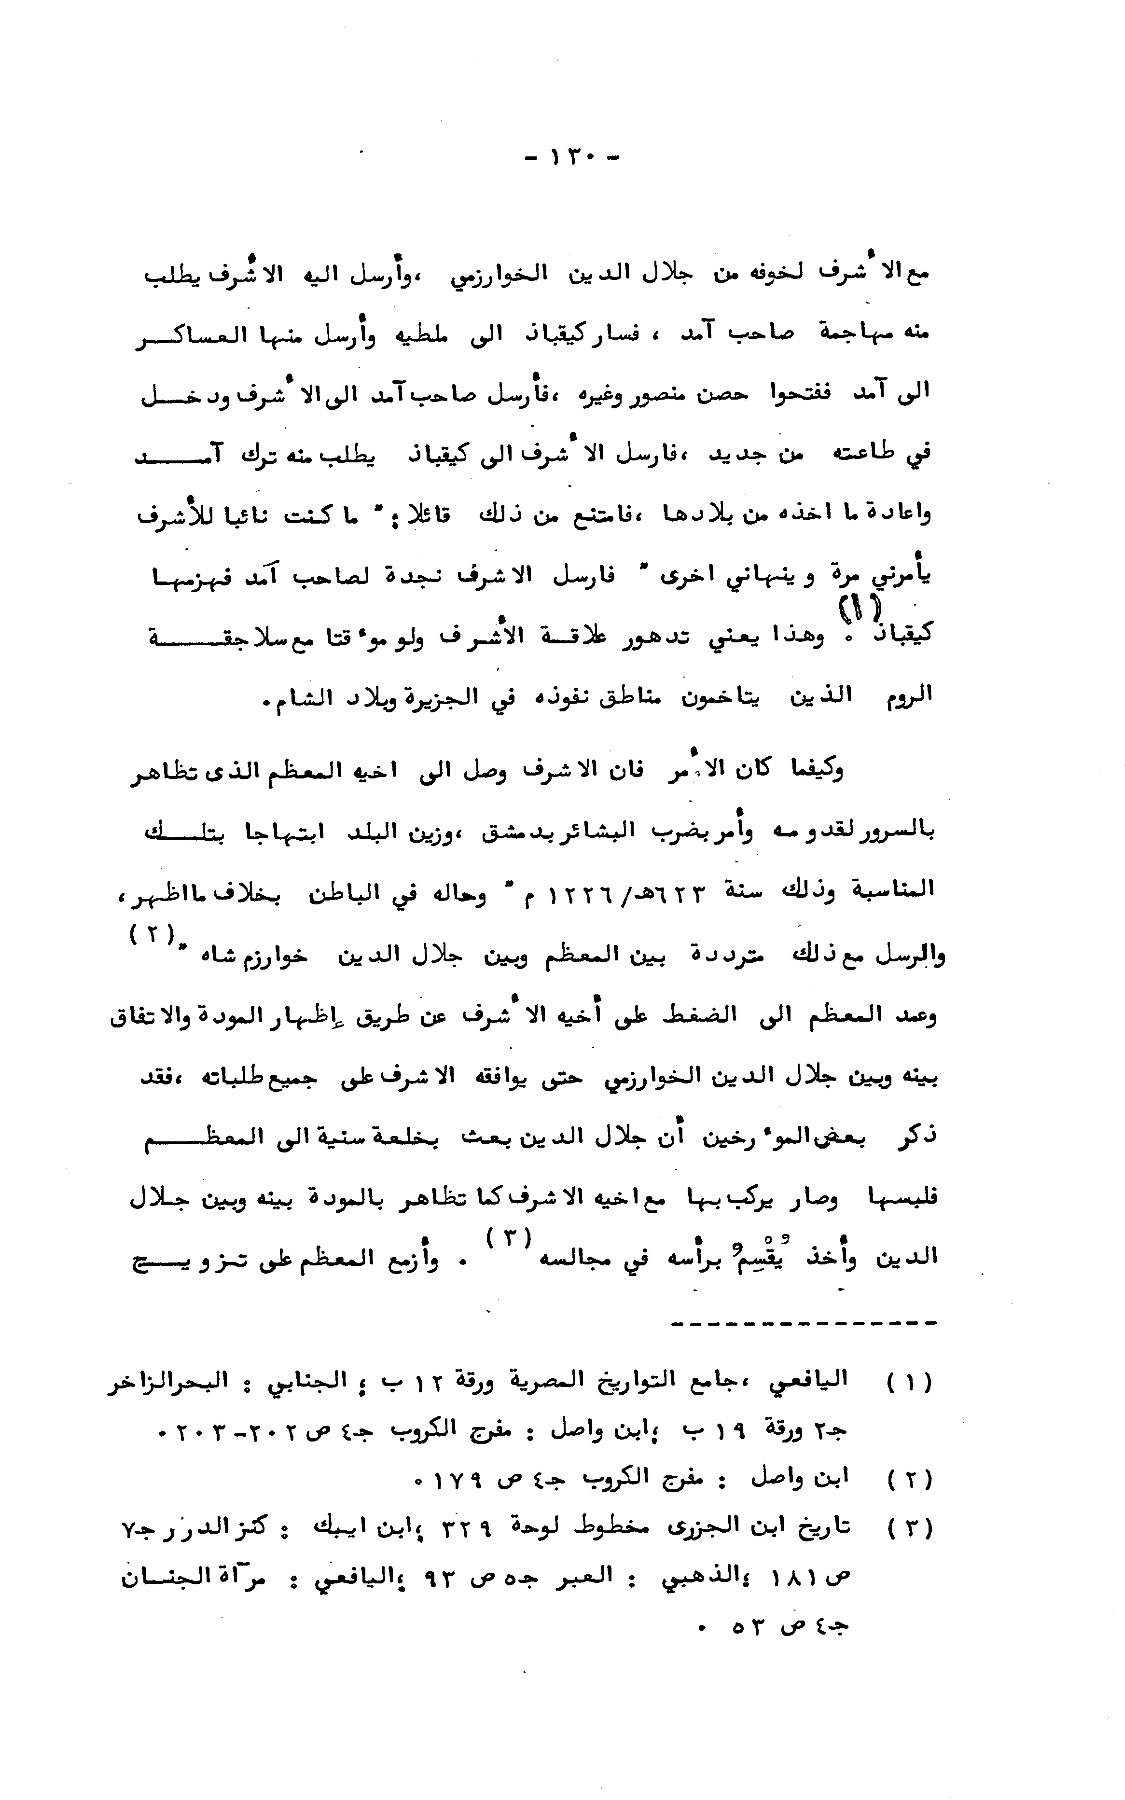 - ١٣٠ -
مع الأشرف لخوفه من جلال الدين الخوارزمي ،وأرسل اليه الأشرف يطلب
منه مهاجمة صاحب آمد ، فسار كيقباذ الى ملطيه وأرسل منها العساكر
الى آمد ففتحوا حصن منصور وغيره ،فأرسل صاحب آمد الى الأشرف ودخل
في طاعته من جديد ،فارسل الأشرف الى كيقباذ يطلب منه ترك آمد
واعادة ما اخذه من بلادها ،فامتنع من ذلك قائلا : " ما كنت نائبا للأشرف
يأمرني مرة وينهاني اخرى " فارسل الاشرف نجدة لصاحب آمد فهزمها
كيقباذ (١) . وهذا يعني تدهور علاقة الأشرف ولو موءقتا مع سلاجقة
الروم الذين يتاخمون مناطق نفوذه في الجزيرة وبلاد الشام .
وكيفما كان الأمر فان الاشرف وصل الى اخيه المعظم الذى تظاهر
بالسرور لقدومه وأمر بضرب البشائر بدمشق ،وزين البلد ابتهاجا بتلك
المناسبة وذلك سنة ٦٢٣هـ/١٢٢٦ م " وحاله في الباطن بخلاف ما اظهر ،
والرسل مع ذلك مترددة بين المعظم وبين جلال الدين خوارزم شاه " (٢)
وعمد المعظم الى الضغط على أخيه الأشرف عن طريق إظهار المودة والاتفاق
بينه وبين جلال الدين الخوارزمي حتى يوافقه الاشرف على جميع طلباته ،فقد
ذكر بعض الموءرخين أن جلال الدين بعث بخلعة سنية الى المعظم
فلبسها وصار يركب بها مع اخيه الاشرف كما تظاهر بالمودة بينه وبين جلال
الدين وأخذ يُقْسِمُ برأسه في مجالسه (٣) . وأزمع المعظم على تزويج
---------------
(١) اليافعي ،جامع التواريخ المصرية ورقة ١٢ ب ؛ الجنابي : البحر الزاخر
جـ٢ ورقة ١٩ ب ؛ابن واصل : مفرج الكروب جـ٤ ص ٢٠٢-٢٠٣ .
(٢) ابن واصل : مفرج الكروب جـ٤ ص ١٧٩ .
(٣) تاريخ ابن الجزرى مخطوط لوحة ٣٢٩ ؛ابن ايبك : كنز الدرر جـ٧
ص ١٨١ ؛الذهبي : العبر جـ٥ ص ٩٣ ؛اليافعي : مرآة الجنان
جـ٤ ص ٥٣ .